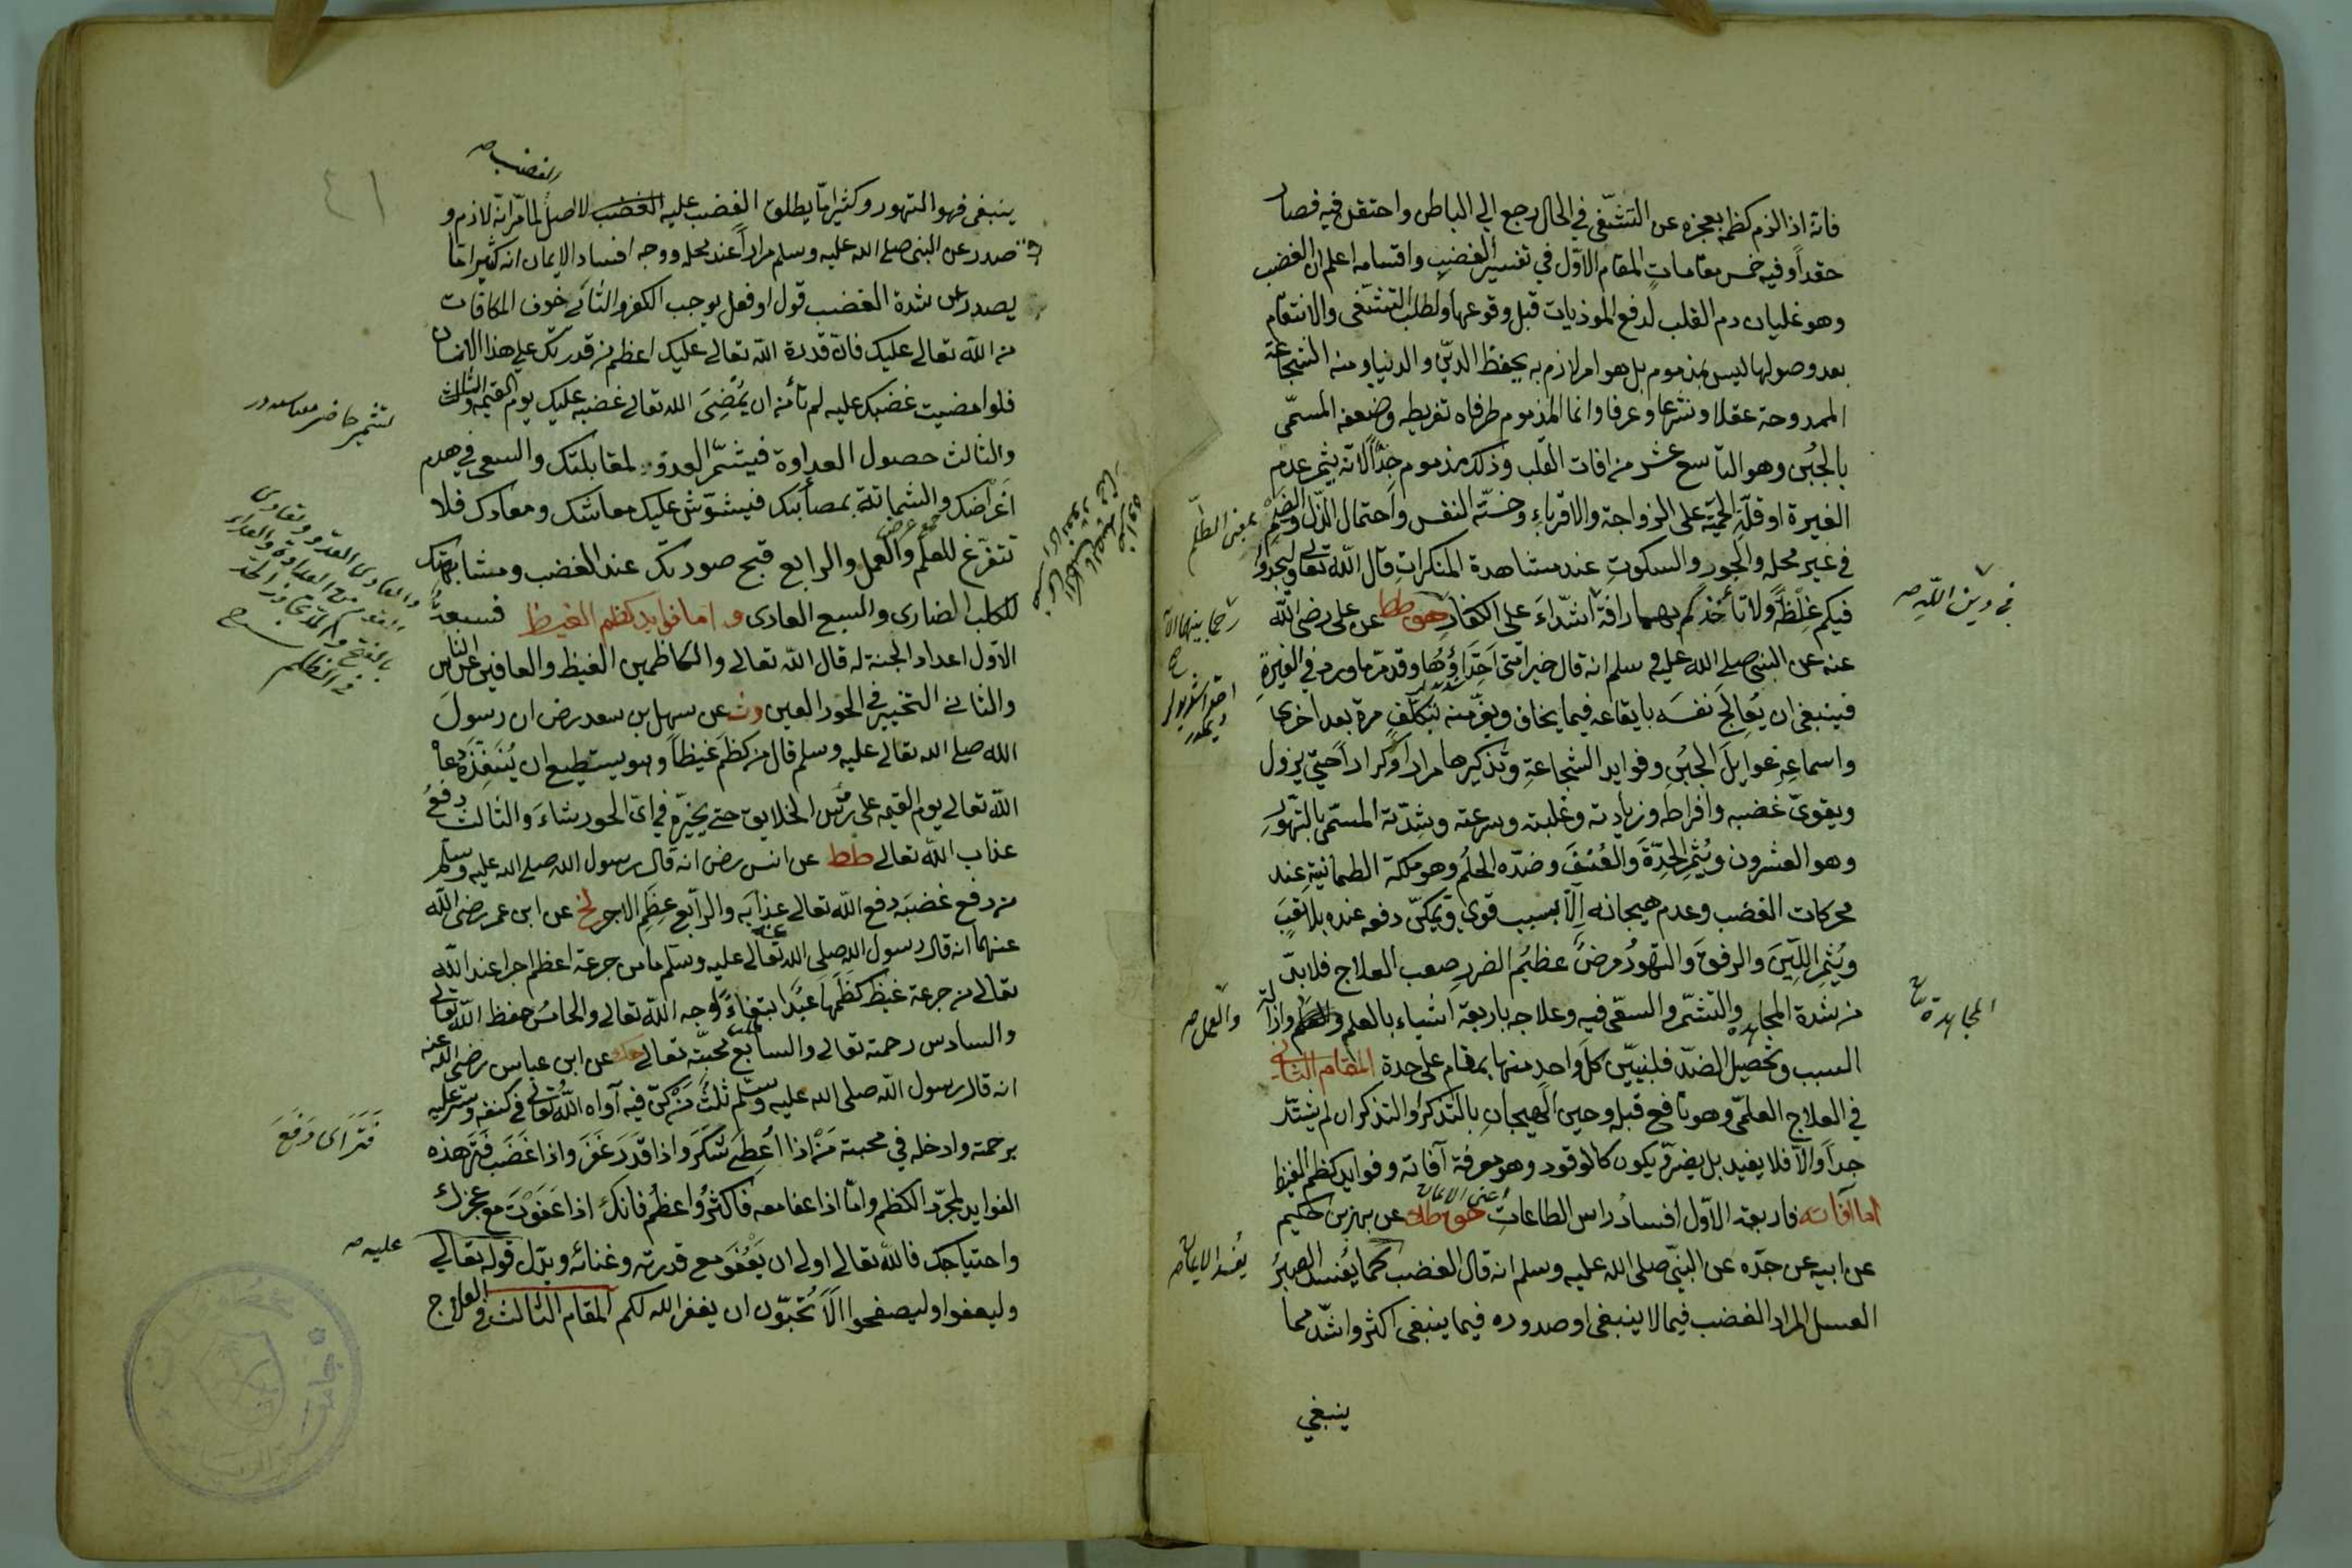 فانه اذا لزم كظمه بعجزه عن التشفّى في الحال رجع الي الباطن واحتقل فيه فصار
حقداً وفيه خمس مقامات المقام الاوّل في تفسير الغضب واقسامه اعلم ان الغضب
وهو غليان دم القلب لدفع الموذيات قبل وقوعها ولطلب التشفى والانتقام
بعد وصولها ليس بمذموم بل هو امر لازم به يحفظ الدين والدنيا ومنه الشجاعة
الممدوحة عقلا وشرعا وعرفا وانما المذموم طرفاه تفريطه وضعفه المسمّى
بالجبن وهو التاسع عشر من افات القلب وذلك مذموم جدّاً لانه يثمر عدم
الغيرة او قلّة الحميّة على الزواجة والاقرباء وخسّة النفس واحتمال الذّل والضيم
بمعنى الظلم
في غير محله والجور والسكوت عند مشاهدة المنكرات قال الله تعالى وليجدوا
فيكم غلظة ولا تأخذكم بهما رافة اشدّاء على الكفار هق طط عن على رضى الله
في دين الله صح
عنه عن النبي صلى الله عليه وسلم انه قال خير امتى احدّاؤها وقد مرّ ما ورد في الغيرة
فينبغى ان يعالج نفسه بايقاعه فيما يخاف ويفرّ منه بتكلّف مرة بعد اخرى
واسماعه غوايل الجبن وفوايد الشجاعة وتذكيرها مرارا وكرارا حتى يزول
ويقوى غضبه وافراطه وزيادته وغلبته وسرعته وشدّته المسمّى بالتهوّر
وهو العشرون ويثمر الحدّة والعنف وضدّه الحلم وهو ملكة الطمانية عند
محركات الغضب وعدم هيجانه الّا بسبب قوى ويمكن دفعه عنده بلا تعب
ويثمر اللين والرفق والتهوّر مرض عظيم الضرر صعب العلاج فلا بدّ
من شدة المجاهدة والتشمّر والسعى فيه وعلاجه باربعة اشياء بالعلم والعمل وازالة
المجاهدة صح
والعمل صح
السبب وتحصيل الضدّ فلنبيّن كلّ واحد منها بمقام على حدة المقام الثانى
في العلاج العلمّى وهو نافع قبله وحين الهيجان بالتذكر والتذكر ان لم يشتدّ
جداً والّا فلا يفيد بل يضرّ يكون كالوقود وهو معرفة آفاته وفوايد كظم الغيظ
اعنى الايمان
اما آفاته فاربعة الاوّل افساد راس الطاعات هق طك عن بهز بن حكيم
عن ابيه عن جدّه عن النبيّ صلى الله عليه وسلم انه قال الغضب كما يفسد الصبر
يفسد الايمان صح
العسل المراد الغضب فيما لا ينبغى او صدوره فيما ينبغى اكثر واشدّ مما
ينبغي
٤١
الغضب صح
ينبغى فهو التهور وكثيرا ما يطلق الغضب عليه الغضب لا اصل لما مرّ انه لازم و
صدر عن النبى صلى الله عليه وسلم مرارا عند محله ووجه افساد الايمان انه كثيرا ما
يصدر عن شدة الغضب قول او فعل يوجب الكفر والثانى خوف المكافات
من الله تعالى عليك فان قدرة الله تعالى عليك اعظم من قدرتك على هذا الانسان
فلو امضيت غضبك عليه لم تأمن ان يمضى الله تعالى غضبه عليك يوم القيمة
والثالث حصول العداوة فيتشمّر العدوّ لمقابلتك والسعى في هدم
اغراضك والشماتة بمصائبك فيشوّش عليك معاشك ومعادك فلا
جمع غرض
تتفرّغ للعلم والعمل والرابع قبح صورتك عند الغضب ومشابهتك
للكلب الضارى والسبع العادى واما فوايد كظم الغيظ فسبعة
الاوّل اعداد الجنة له قال الله تعالى والكاظمين الغيظ والعافين عن الناس
والثانى التخيير في الحور العين عن سهل بن سعد رضى ان رسول
الله صلى الله تعالى عليه وسلم قال من كظم غيظاً وهو يستطيع ان ينفذه دعاه
الله تعالى يوم القيمة على رؤس الخلايق حتى يخيّره في اىّ الحور شاء والثالث دفع
عذاب الله تعالى طط عن انس رضى انه قال رسول الله صلى الله عليه وسلم
من دفع غضبه دفع الله تعالى عنه عذابه والرابع عظم الاجر عن ابن عمر رضى الله
عنهما انه قال رسول الله صلى الله تعالى عليه وسلم ما من جرعة اعظم اجرا عند الله
تعالى من جرعة غيظ كظمها عبد ابتغاء وجه الله تعالى والخامس حفظ الله تعالى
والسادس رحمته تعالى والسابع محبّته تعالى عن ابن عباس رضى الله عنه
انه قال رسول الله صلى الله عليه وسلم ثلث من كنّ فيه آواه الله تعالى في كنفه وستر عليه
برحمته وادخله في محبته من اذا اعطى شكر واذا قدر غفر واذا غضب فتر هذه
الفوايد لمجرّد الكظم وامّا اذا عفا معه فاكثر واعظم فانك اذا عفوت مع عجزك
واحتياجك فالله تعالى اولى ان يعفو مع قدرته وغنائه ويدلّ قوله تعالى
عليه صح
وليعفوا وليصفحوا الا تحبّون ان يغفر الله لكم المقام الثالث في العلاج